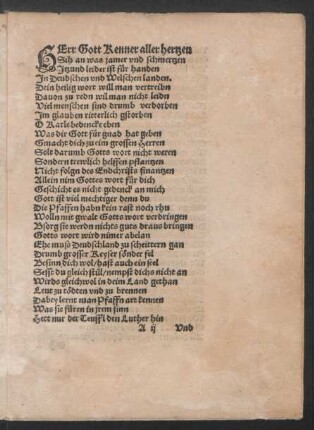 HErr Gott Kenner aller hertzen
Sih an was jamer vnd schmertzen
Itzund leider ist für handen
In Deudschen vnd Welschen landen.
Dein heilig wort will man vertreibn
Dauon zu redn wil man nicht leidn
Viel menschen sind drumb verdorben
Im glauben ritterlich gstorben
O Karle bedencke eben
Was dir Gott für gnad hat geben
Gmacht dich zu eim grossen Herren
Solt darumb Gotts wort nicht weren
Sondern trewlich helffen pflantzen
Nicht folgn des Endchrists finantzen
Allein nim Gottes wort für dich
Geschicht es nicht gedenck an mich
Gott ist viel mechtiger denn du
Die Pfaffen habn kein rast noch rhu
Wolln mit gwalt Gotts wort verdringen
Bsorg sie werdn nichts guts draus bringen
Gotts wort wird nimer abelan
Ehe muss Deudschland zu scheittern gan
Drumb grosser Keyser sönder fil
Besinn dich wol/hast auch ein seel
Sesst du gleich still/nempst dichs nicht an
Wirds gleichwol in deim Land gethan
Leut zu tödten vnd zu brennen
Dabey lernt man Pfaffn art kennen
Was sie füren in jrem sinn
Hett nur der Teuffl den Luther hin
A ij Vnd